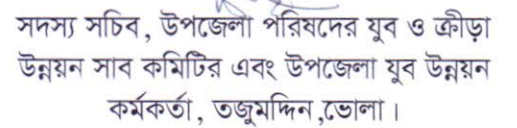 সদস্য সচিব, উপজেলা পরিষদের যুব ও ক্রীড়া
উন্নয়ন সাব কমিটির এবং উপজেলা যুব উন্নয়ন
কর্মকর্তা, তজুমদ্দিন,ভোলা।